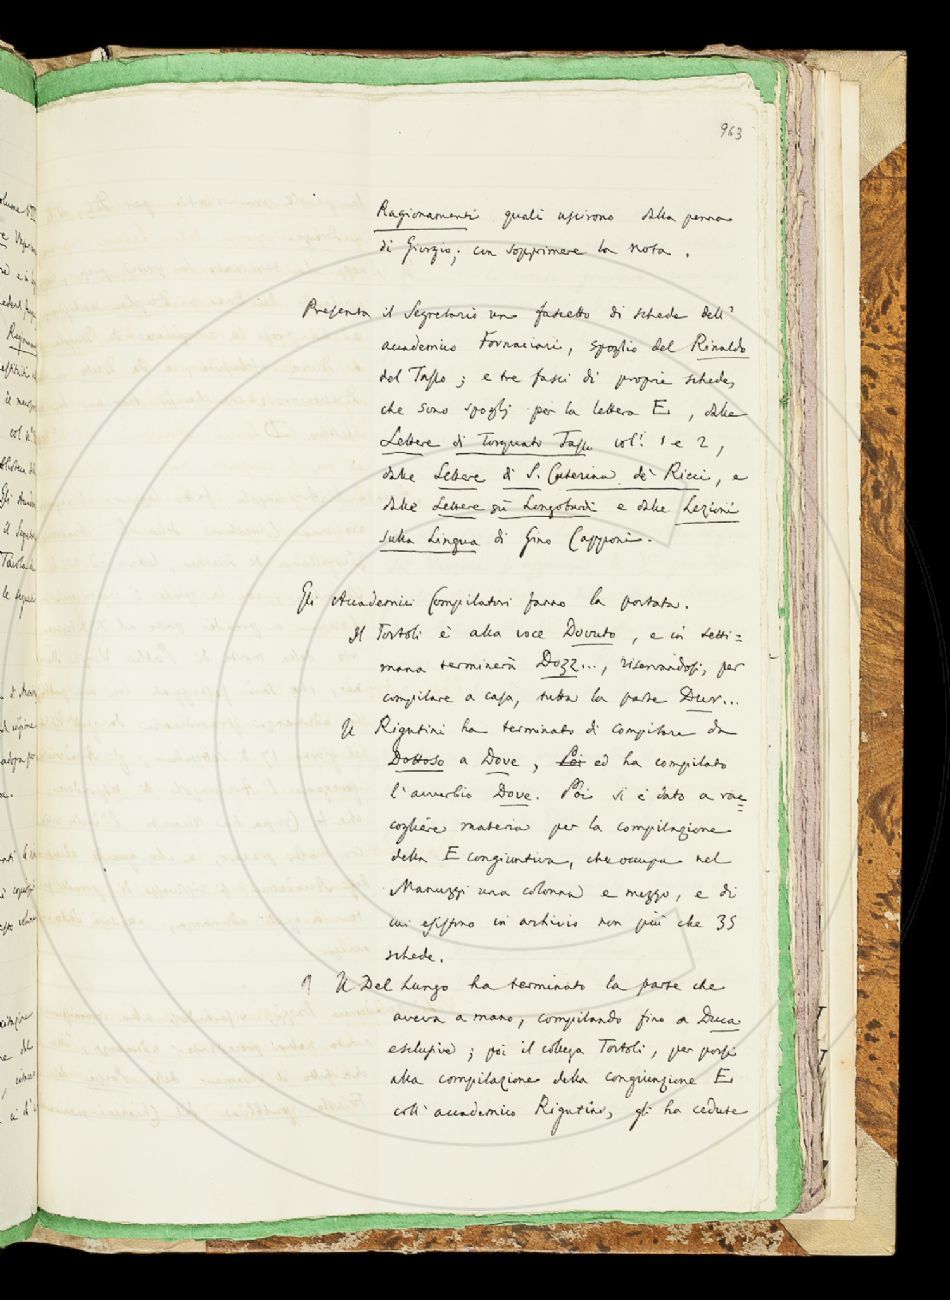 963
Ragionamenti quali uscirono dalla penna
di Giorgio; con sopprimere la nota.
Presenta il Segretario un fascetto di schede dell'
accademico Fornaciari, spoglio del Rinaldo
del Tasso; e tre fasci di proprie schede,
che sono spoglj per la lettera E, dalle
Lettere di Torquato Tasso vol.i 1 e 2,
dalle Lettere di S. Caterina de' Ricci, e
dalle Lettere sui Longobardi e dalle Lezioni
sulla Lingua di Gino Capponi.
Gli Accademici Compilatori fanno la portata.
Il Tortoli è alla voce Dovuto, e in setti=
mana terminerà Dozz..., riservandosi, per
compilare a casa, tutta la parte Dur...
Il Rigutini ha terminato di compilare da
Dottoso a Dove, ed ha compilato
l'avverbio Dove. Poi si è dato a rac=
cogliere materia per la compilazione
della E congiuntiva, che occupa nel
Manuzzi una colonna e mezzo, e di
cui esistono in archivio non più che 35
schede.
Il Del Lungo ha terminato la parte che
aveva a mano, compilando fino a Duca
esclusive; poi il collega Tortoli, per porsi
alla compilazione della congiunzione E
coll'accademico Rigutini, gli ha cedute